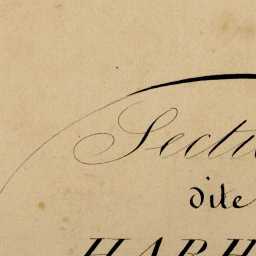 Secti
dite
HARH